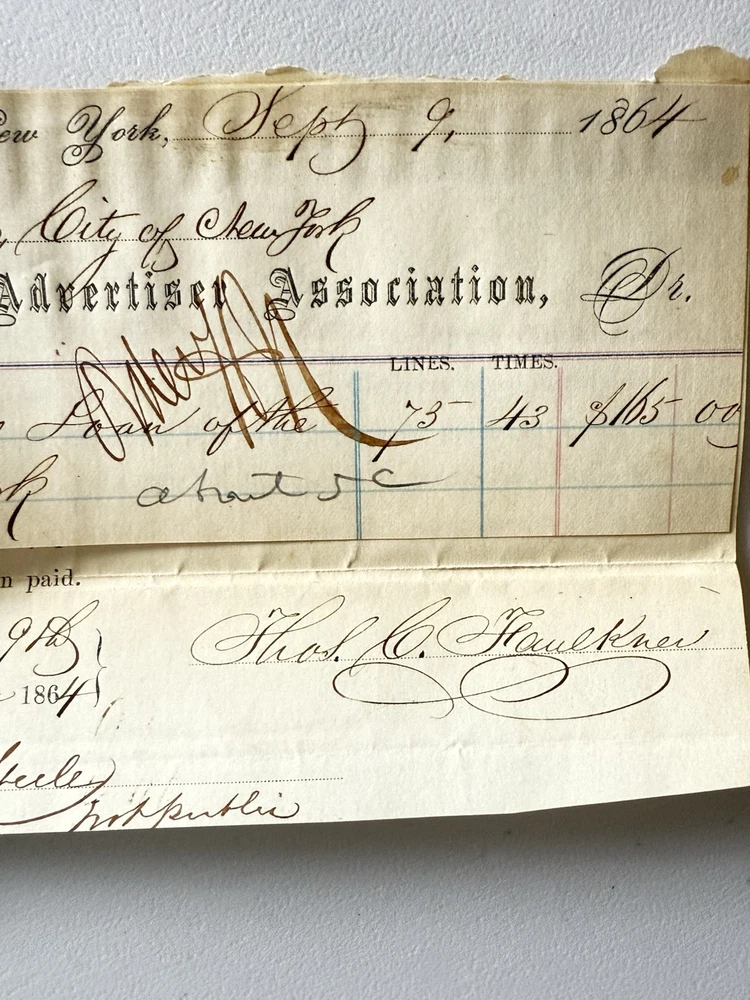 ew York, Sept 9, 1864
City of New York
Advertiser Association, Dr.
LINES. TIMES.
Loan of the 75 43 $165 00
rk about 5 c
n paid.
9th
1864
Thos. C. Faulkner
Not Public